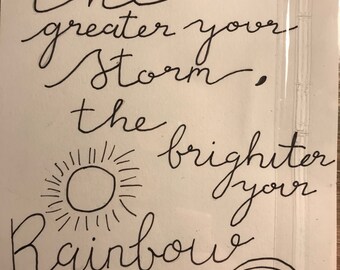 The
greater your
storm,
the
brighter
your
Rainbow